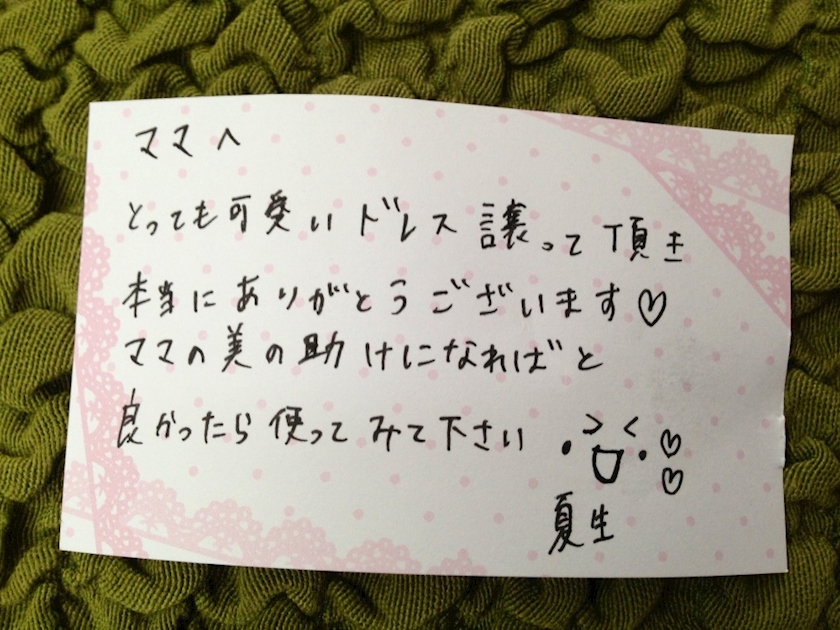 ママへ
とっても可愛いドレス譲って頂き
本当にありがとうございます♡
ママの美の助けになればと
良かったら使ってみて下さい
夏生